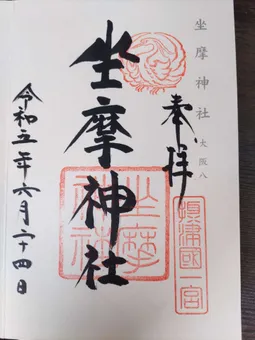 坐摩神社 大阪八
奉拝
攝津國一宮
坐摩神社
坐摩神社
令和五年六月二十四日